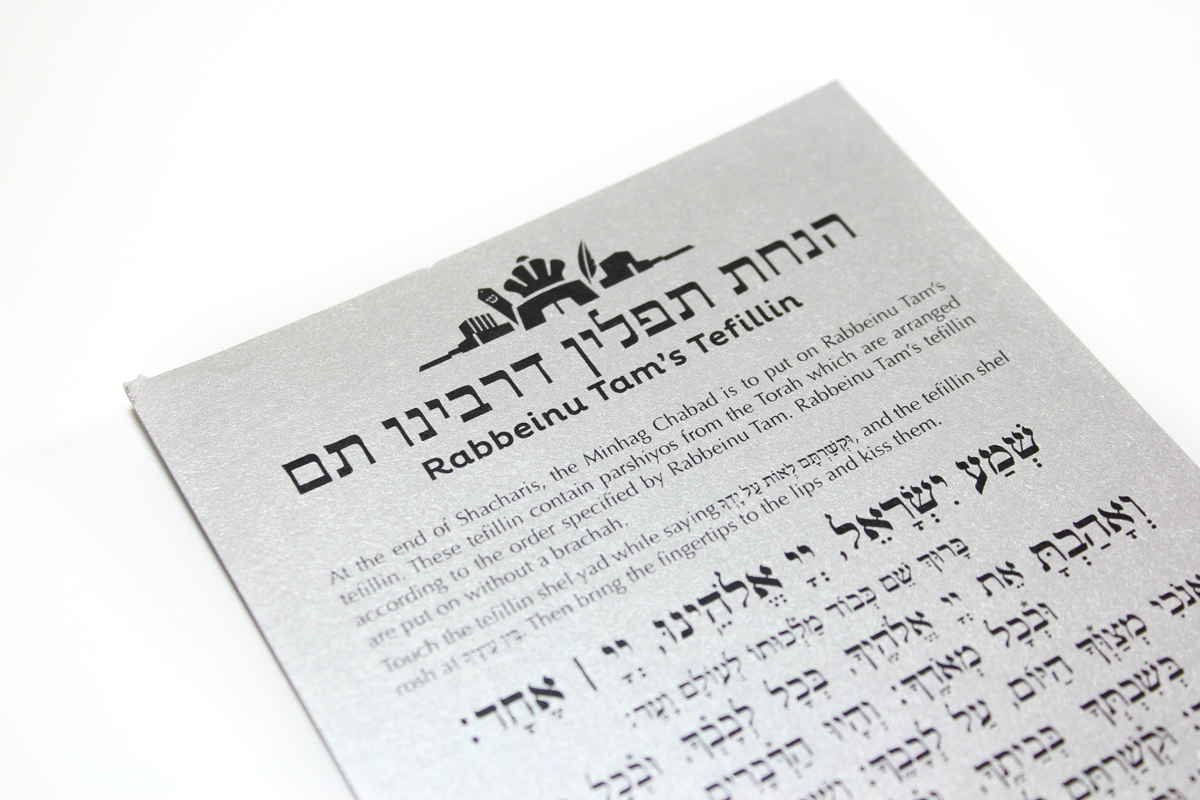 הנחת תפלין דרבינו תם
Rabbeinu Tam's Tefillin
At the end of Shacharis, the Minhag Chabad is to put on Rabbeinu Tam's
tefillin. These tefillin contain parshiyos from the Torah which are arranged
according to the order specified by Rabbeinu Tam. Rabbeinu Tam's tefillin
are put on without a brachah.
Touch the tefillin shel yad while saying וּקְשַׁרְתָּם לְאוֹת עַל יָדֶךָ, and the tefillin shel
rosh at בֵּין עֵינֶיךָ. Then bring the fingertips to the lips and kiss them.
שְׁמַע יִשְׂרָאֵל, יְיָ אֱלֹהֵינוּ, יְיָ | אֶחָד:
בָּרוּךְ שֵׁם כְּבוֹד מַלְכוּתוֹ לְעוֹלָם וָעֶד:
וְאָהַבְתָּ אֵת יְיָ אֱלֹהֶיךָ, בְּכָל לְבָבְךָ, וּבְכָל
וּבְכָל מְאֹדֶךָ: וְהָיוּ הַדְּבָרִים
אָנֹכִי מְצַוְּךָ הַיּוֹם, עַל לְבָבֶךָ:
בְּשִׁבְתְּךָ בְּבֵיתֶךָ
וּקְשַׁרְתָּם